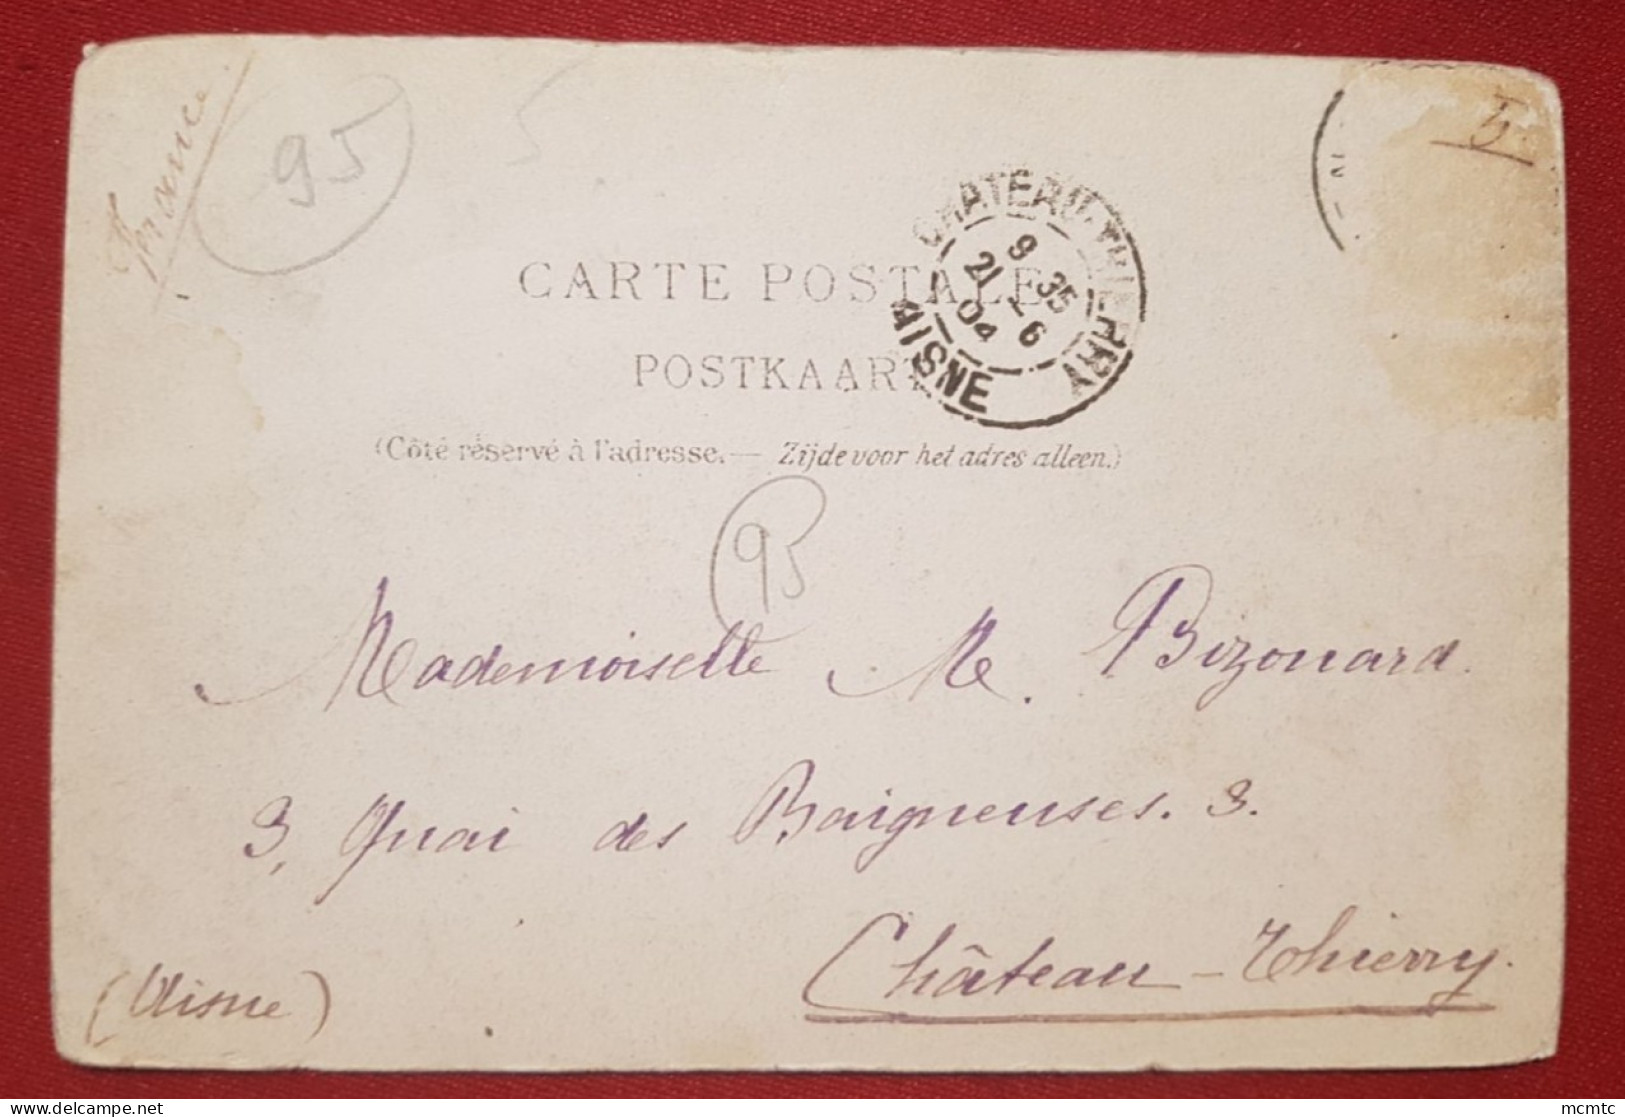 France
95
5
5
CARTE POSTALE
POSTKAART
(Côté réservé à l'adresse. — Zijde voor het adres alleen.)
CHATEAU-THIERRY
9 35
21 - 6
04
AISNE
95
Mademoiselle M. Bizouard.
3, Quai des Baigneuses. 3.
Château-Thierry.
(Aisne)
mcmtc